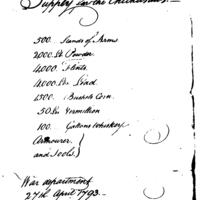 Supply for the Chickasaws.
500. Stands of Arms
2000. lbs Powder
4000. Flints
4000. lbs Lead
1500 Bushels Corn.
50 lbs Vermillion
100. Gallons Whiskey
Armourer }
and Tools }
War department
27th April 1793.